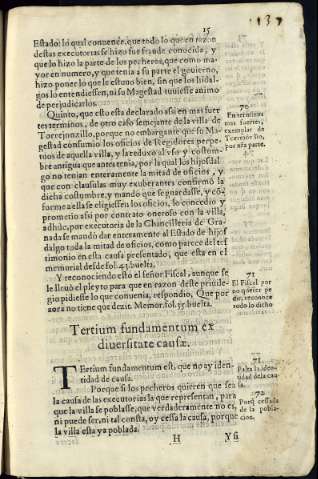 137
15
Estado: lo qual conuence, que todo lo que en razon
destas executorias se hizo fue fraude conocida, y
que lo hizo la parte de los pecheros, que como ma-
yor en numero, y que tenia a su parte el gouierno,
hizo poner lo que le estuuo bien, sin que los hidal-
gos lo entendiessen, ni su Magestad tuuiesse animo
de perjudicarlos.
Quinto, que esto esta declarado assi en mas fuer-
tes terminos, de otro caso semejante de la villa de
Torrejonzillo, porque no embargante que su Ma-
gestad consumio los oficios de Regidores perpe-
tuos de aquella villa, y la reduxo al vso y costum-
bre antigua que antes tenia, por la qual los hijosdal-
go no tenian enteramente la mitad de oficios, y
que con clausulas muy exuberantes confirmò la
dicha costumbre, y mandò que se guardasse, y cõ-
forme a ella se eligiessen los oficios, lo concedio y
prometio assi por contrato oneroso con la villa,
adhuc, por executoria de la Chancilleria de Gra-
nada se mandò dar enteramente al Estado de hijos
dalgo toda la mitad de oficios, como parece del tes
timonio en esta causa presentado, que esta en el
memorial desde fol.43.buelta.
Y reconociendo esto el señor Fiscal, aunque se
le lleuò el pleyto para que en razon deste priuile-
gio pidiesse lo que conuenia, respondio, Que por
aora no tiene que dezir. Memor. fol.57.buelta.
Tertium fundamentum ex
diuersitate causæ.
Tertium fundamentum est, que no ay iden-
tidad de causa.
Porque si los pecheros quieren que sea
la causa de las executorias la que representan, para
que la villa se poblasse, que verdaderamente no es,
ni puede ser, ni tal consta, oy cessa la causa, porque
la villa esta ya poblada.
H
70
En terminos
mas fuertes,
exemplar de
Torrejonzillo,
por esta parte.
71
El Fiscal por
no querer pe-
dir, reconoce
todo lo dicho
71
Falta la iden-
tidad de la cau
sa.
72
Porq̃ cessada
de la pobla-
cion.